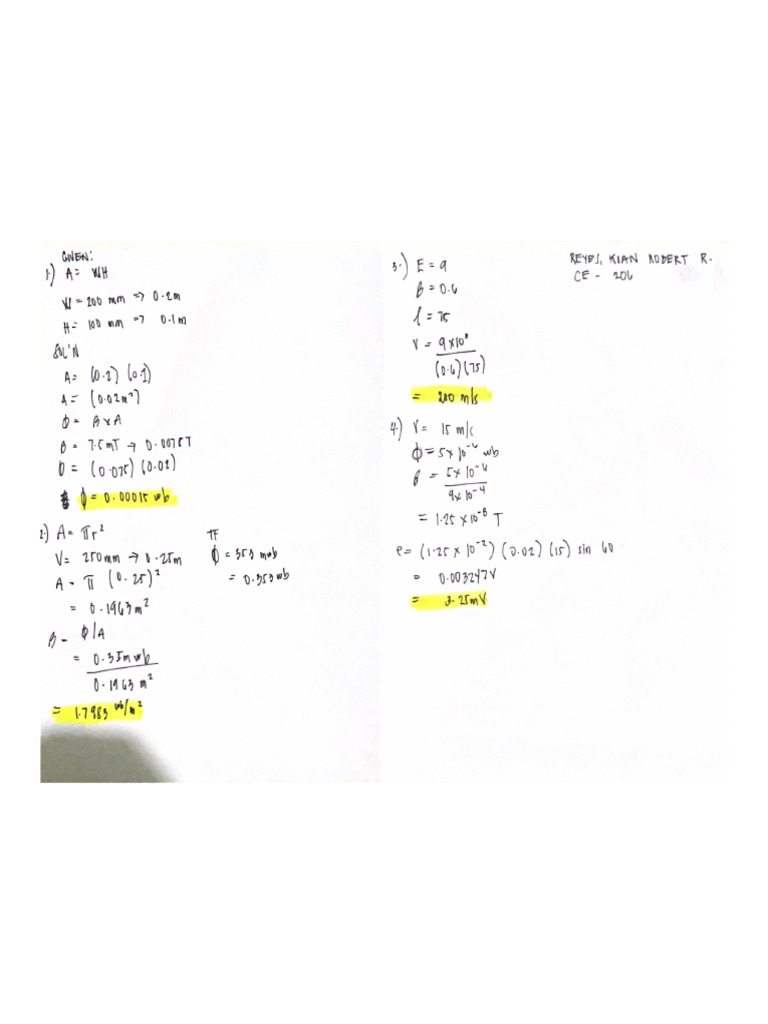 GIVEN:
1.) A = WH
W = 200 mm => 0.2m
H = 100 mm => 0.1m
SOL'N
A = (0.2) (0.1)
A = (0.02m²)
Φ = B x A
B = 7.5mT → 0.0075T
Φ = (0.075) (0.02)
Φ = 0.00015 wb
2.) A = πr²
V = 250mm → 0.25m
A = π (0.25)²
= 0.1963m²
B = Φ/A
= 0.35m wb
0.1963 m²
= 1.7983 wb/m²
TF
Φ = 353 mwb
= 0.353wb
3.) E = 9
B = 0.6
l = 75
V = 9x10⁰
(0.6)(75)
= 200 m/s
REYES, KIAN ROBERT R.
CE - 206
4.) V = 15 m/s
Φ = 5x10⁻⁶ wb
B = 5x10⁻⁶
4x10⁻⁴
= 1.25 x10⁻⁸ T
e = (1.25 x 10⁻²) (0.02) (15) sin 60
= 0.003247V
= 3.25mV